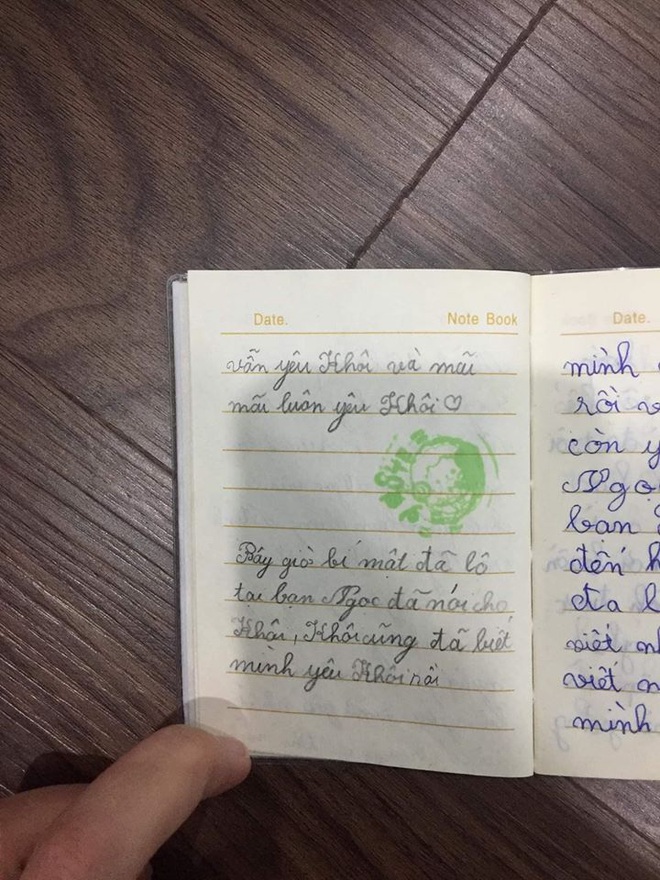 Date.
Note Book
vẫn yêu Khôi và mãi
mãi luôn yêu Khôi♡
Bây giờ bí mật đã lộ
tại bạn Ngọc đã nói cho
Khôi, Khôi cũng đã biết
mình yêu Khôi rồi
Date.
mình
rồi v
còn y
Ngọ
bạn
đến h
đa l
viết nh
viết n
mình